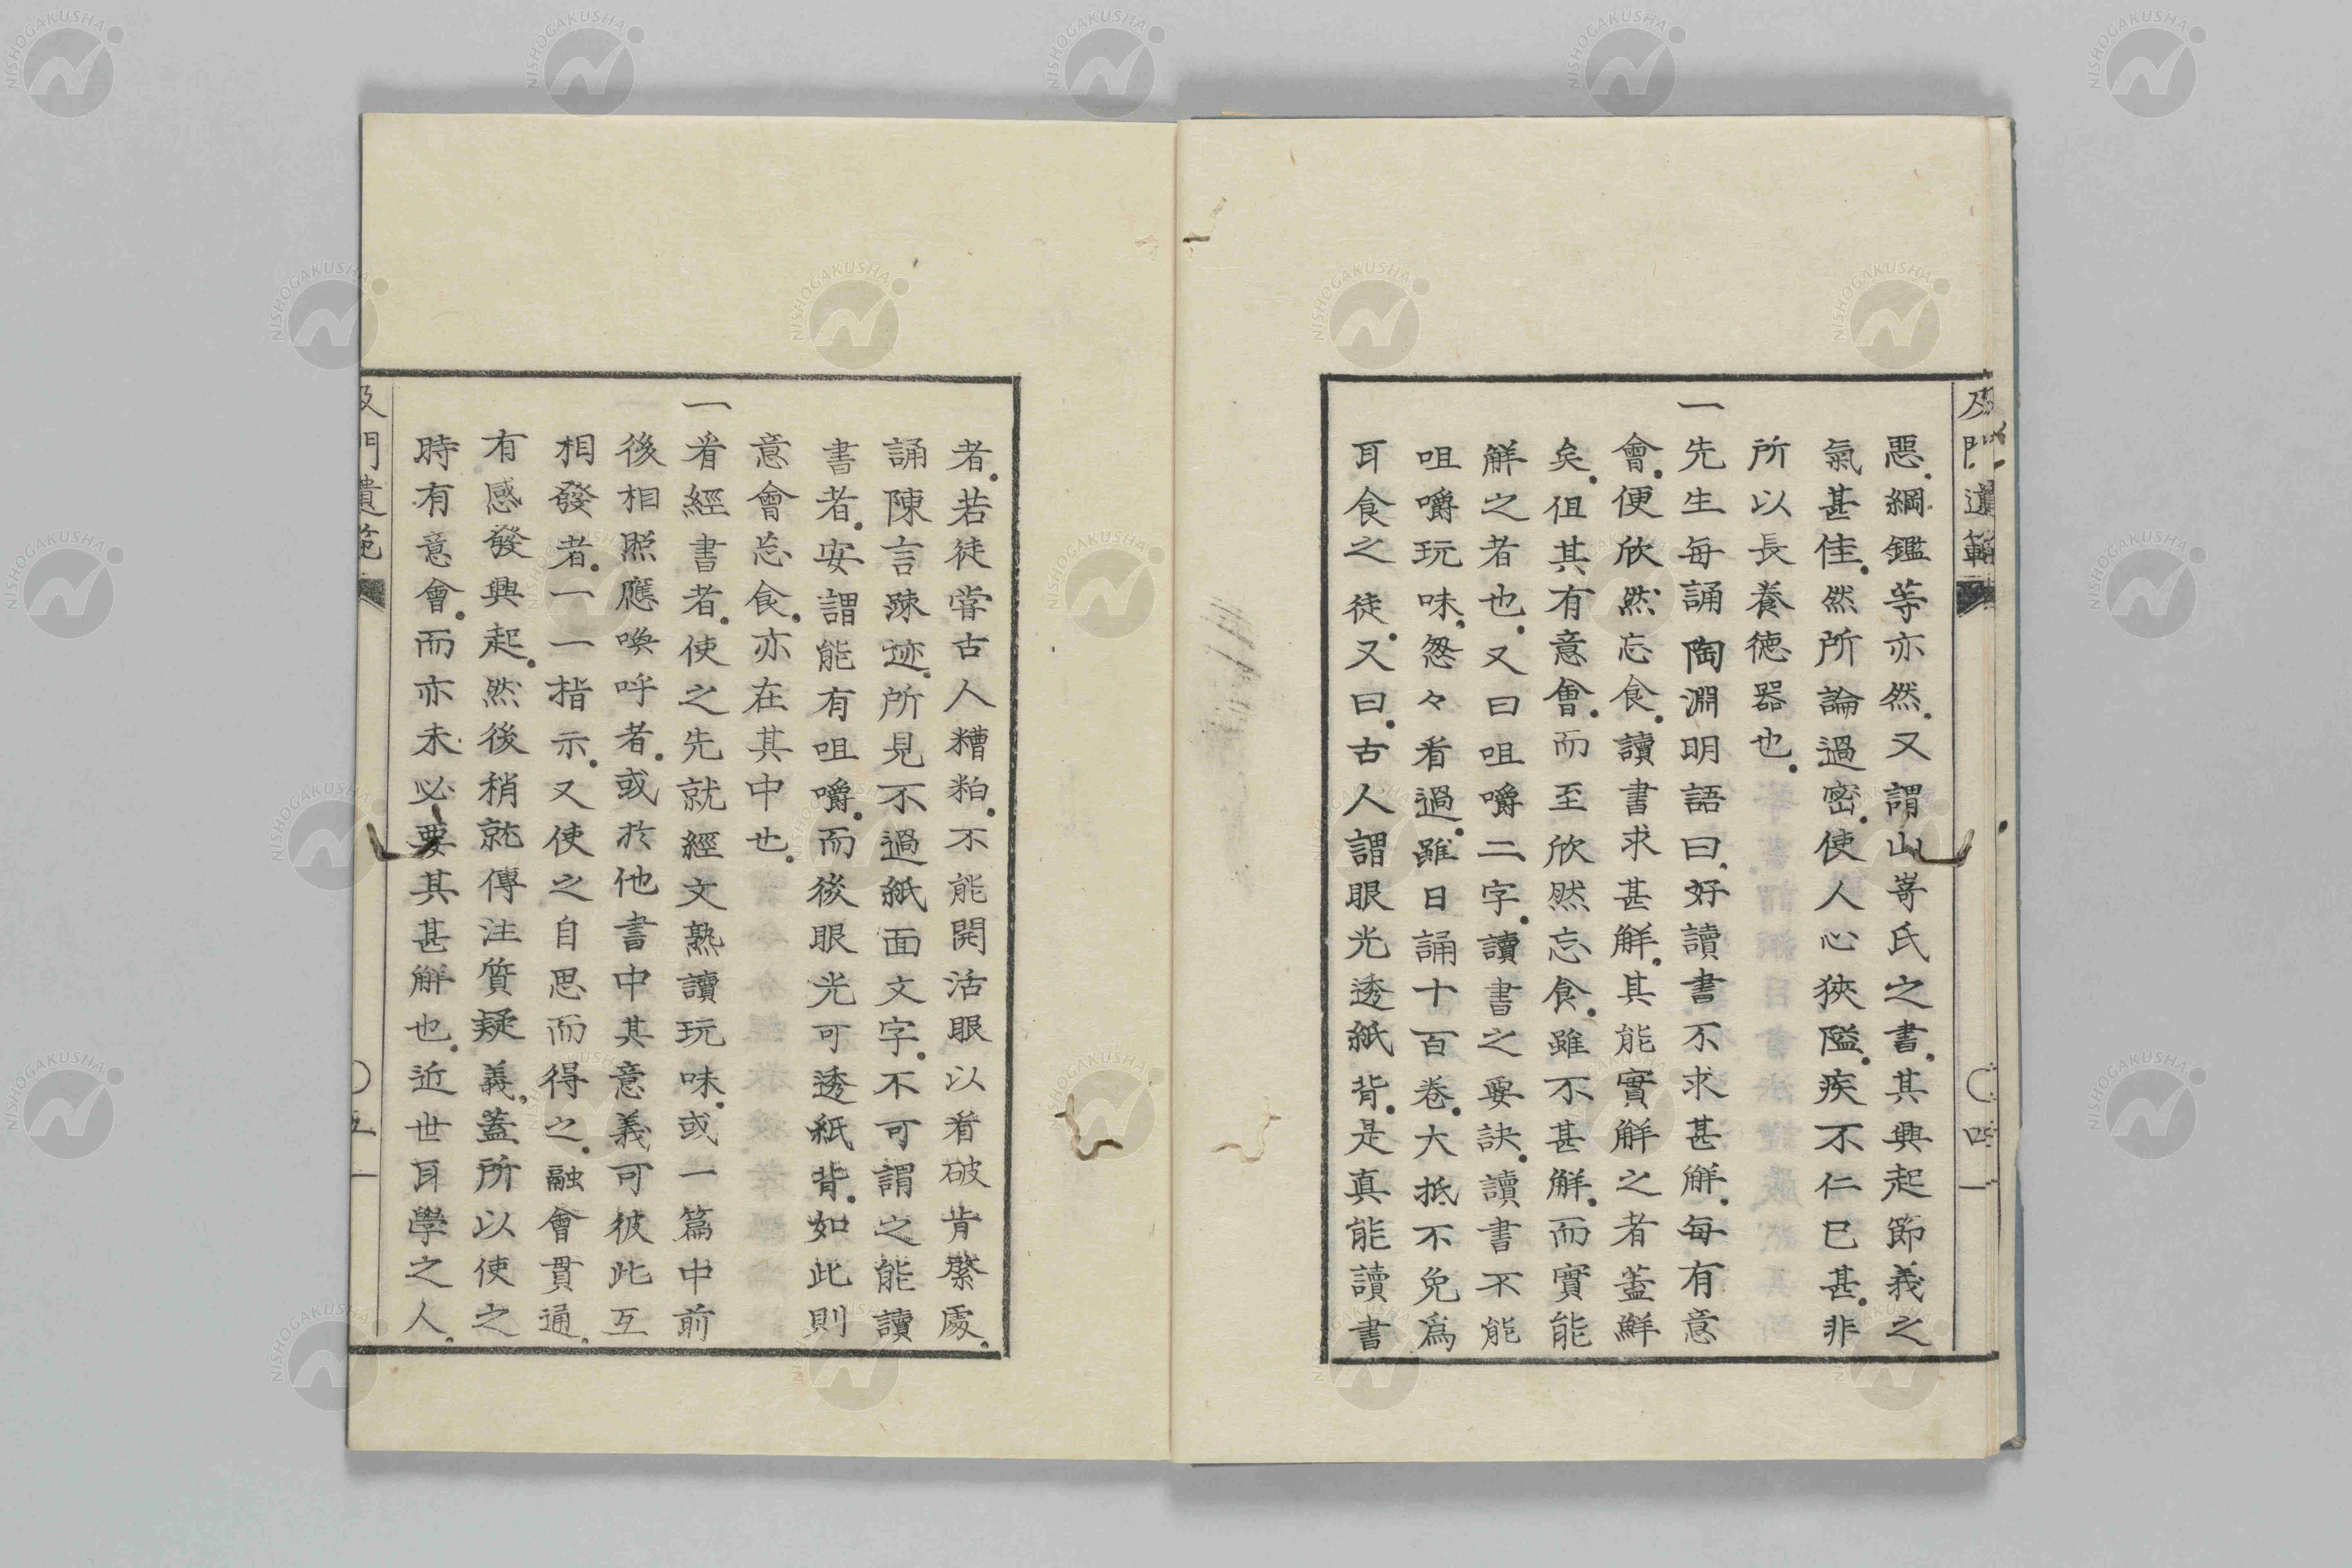 惡。綱鑑等亦然。又謂山嵜氏之書。其興起節義之
氣甚佳。然所論過密。使人心狹隘。疾不仁已甚。非
所以長養德器也。
一先生每誦陶淵明語曰。好讀書不求甚解。每有意
會。便欣然忘食。讀書求甚解。其能實解之者蓋鮮
矣。但其有意會。而至欣然忘食。雖不甚解。而實能
解之者也。又曰咀嚼二字。讀書之要訣。讀書不能
咀嚼玩味。怱々看過。雖日誦十百卷。大抵不免爲
耳食之徒。又曰。古人謂眼光透紙背。是真能讀書
者。若徒嘗古人糟粕。不能開活眼以看破肯綮處。
誦陳言踈迹。所見不過紙面文字。不可謂之能讀
書者。安謂能有咀嚼。而後眼光可透紙背。如此則
意會忘食。亦在其中也。
一看經書者。使之先就經文熟讀玩味。或一篇中前
後相照應喚呼者。或於他書中其意義可彼此互
相發者。一一指示。又使之自思而得之。融會貫通。
有感發興起。然後稍就傳注質疑義。蓋所以使之
時有意會。而亦未必要其甚解也。近世耳學之人。
及門遺範
〇四
及門遺範
〇五
NISHOGAKUSHA